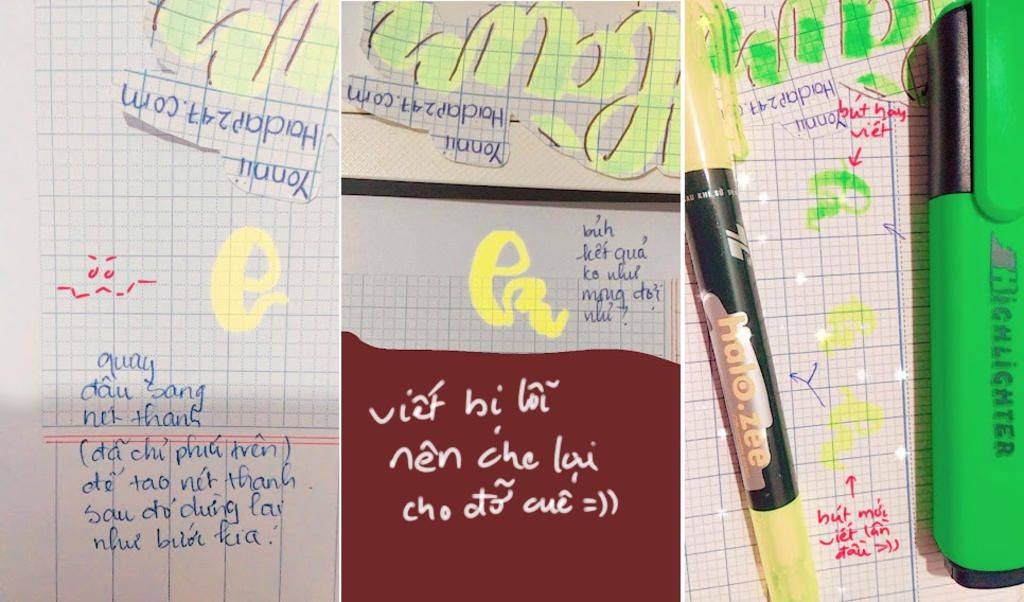 Yonnii
Hoidap247.com
quay
đầu sang
nét thanh
(đã chỉ phía trên)
để tạo nét thanh
sau đó dừng lại
như bước kia!
e
Yonnii
Hoidap247.com
en
bủh
kết quả
ko như
mong đợi
như?
viết bị lỗi
nên che lại
cho đỡ cuê =))
Yonnii
Hoidap247.com
bút hay
viết
bút mới
viết lần
đầu =))
halo.zee
HIGHLIGHTER